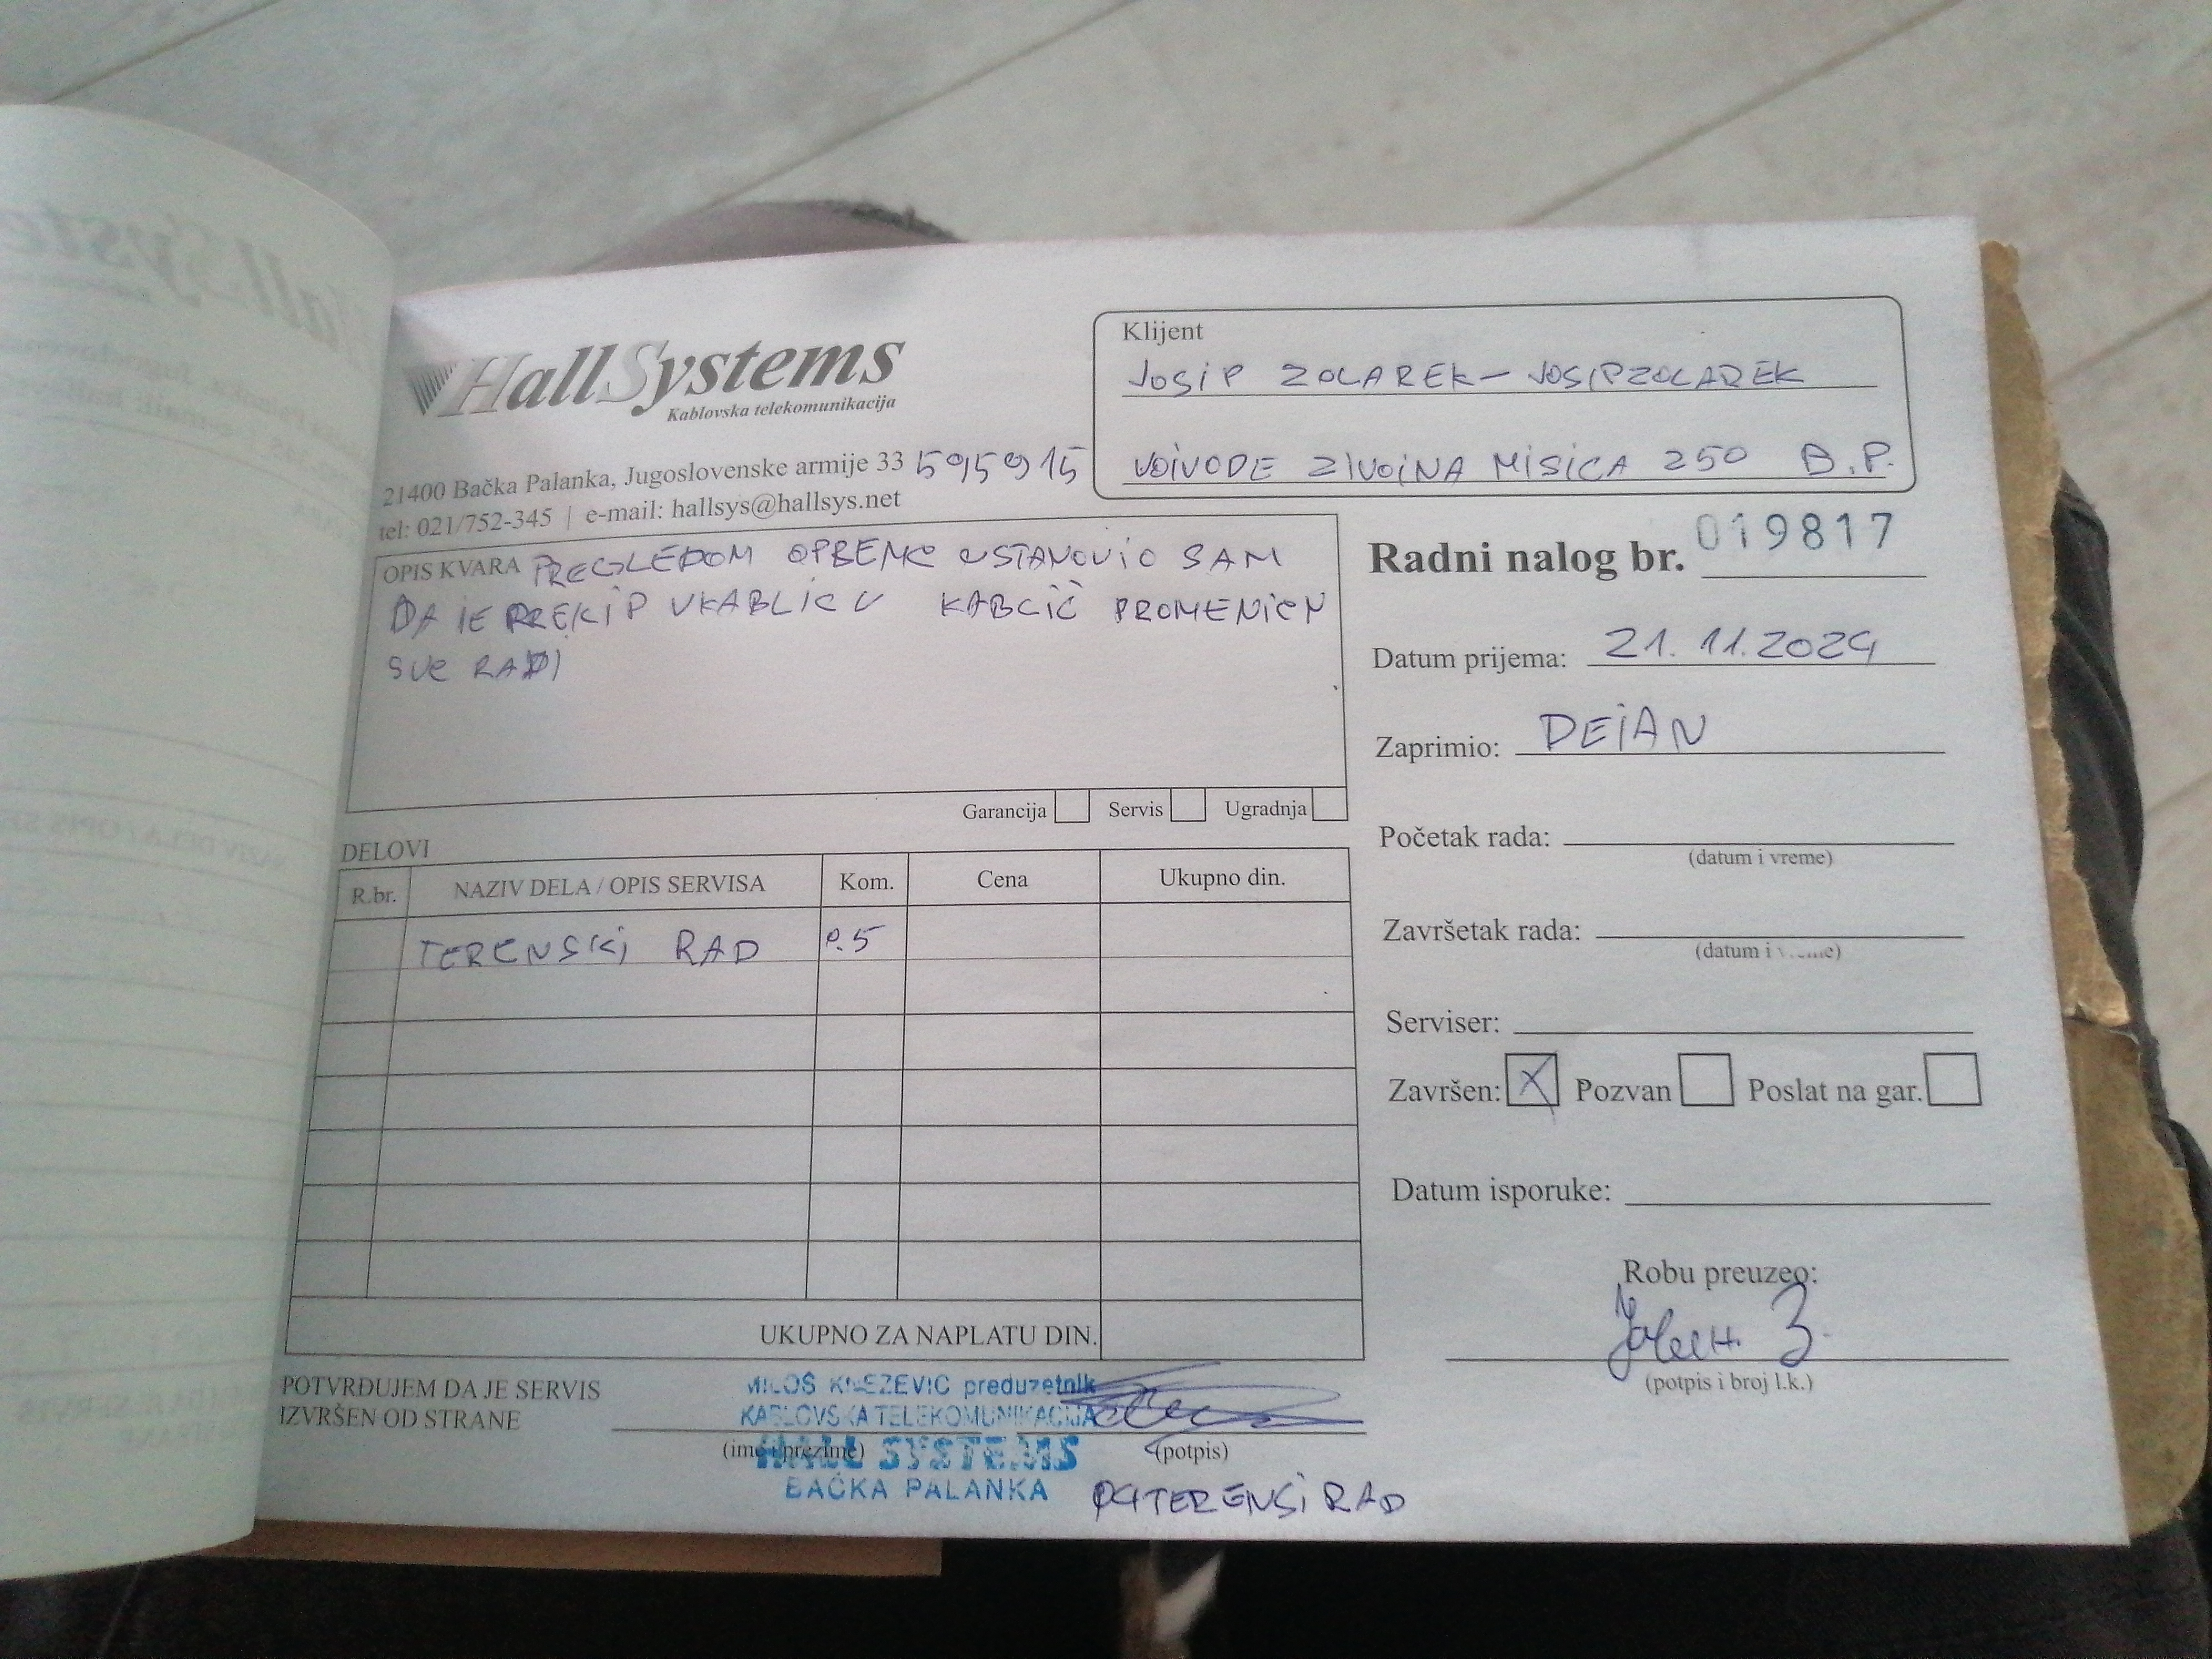 HallSystems
Kablovska telekomunikacija
21400 Bačka Palanka, Jugoslovenske armije 33 595915
tel: 021/752-345 | e-mail: hallsys@hallsys.net
Klijent
JOSIP ZOLAREK - JOSIPZOLAREK
VOIVODE ZIVOINA MISICA 250 B.P.
OPIS KVARA PREGLEDOM OPREME USTANOVIO SAM
DA IE PREKIP UKABLICU KABLIČ PROMENIEN
SVE RADI
Garancija Servis Ugradnja
Radni nalog br. 019817
Datum prijema: 21.11.2024
Zaprimio: DEIAN
Početak rada:
(datum i vreme)
Završetak rada:
(datum i vreme)
Serviser:
Završen: X Pozvan Poslat na gar.
Datum isporuke:
Robu preuzeo:
(potpis i broj l.k.)
DELOVI
R.br. NAZIV DELA / OPIS SERVISA Kom. Cena Ukupno din.
TERENSKI RAD 0.5
UKUPNO ZA NAPLATU DIN.
POTVRĐUJEM DA JE SERVIS
IZVRŠEN OD STRANE
(ime i prezime) (potpis)
MILOŠ KNEZEVIC preduzetnik
KABLOVSKA TELEKOMUNIKACIJA
HALL SYSTEMS
BAČKA PALANKA
TERENSI RAD